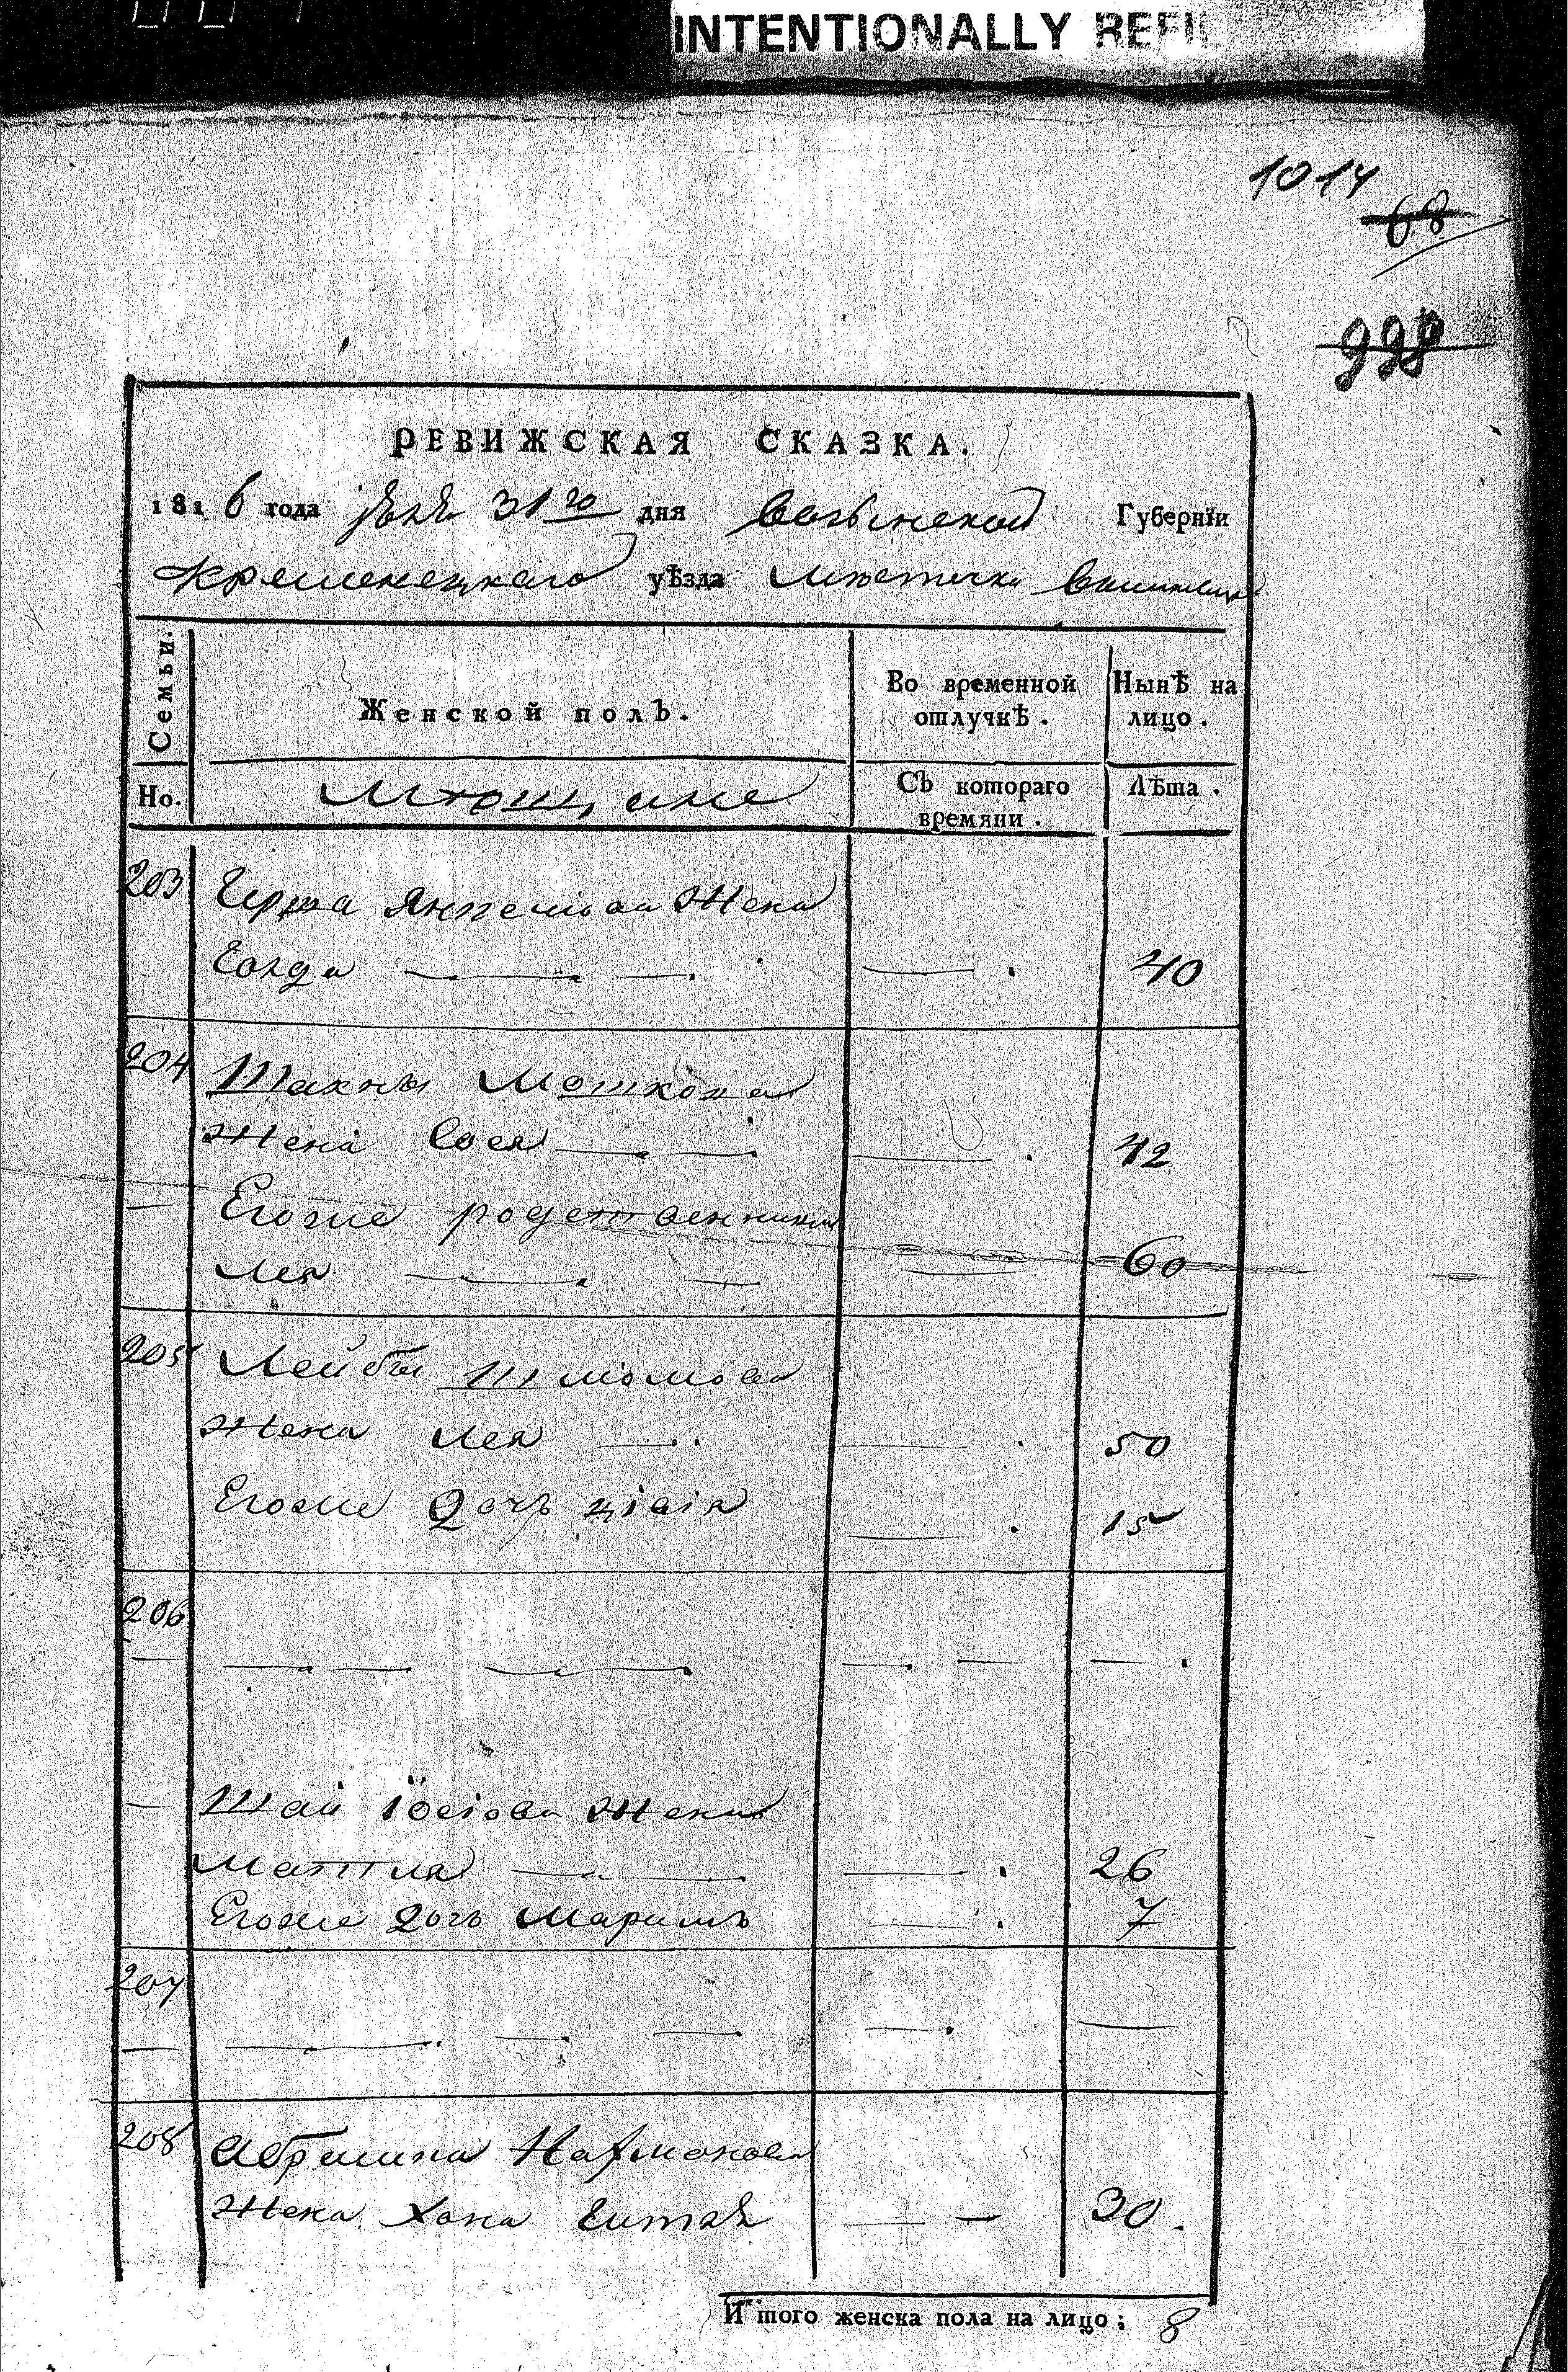 INTENTIONALLY REFI
1014
68
998
РЕВИЖСКАЯ СКАЗКА.
1816 года 31го дня Волынской Губернїи
Кременецкаго уѣзда Мѣстечка
Семьи.
Женской полъ.
Во временной
отлучкѣ.
Нынѣ на
лицо.
Но.
Съ котораго
времяни.
Лѣта.
203
Герша жена
Голда 40
204
Шахны Мошкова
Жена Сося 42
Егоже родственника
Лея 60
205
Лейбы Шлiомова
жена Лея 50
Егоже дочь 15
206
Шаи Iосiова жена
Матля 26
Егоже дочь Маримъ 7
207
208
Абрамка Нахмонова
жена Хана 30.
Итого женска пола на лицо; 8